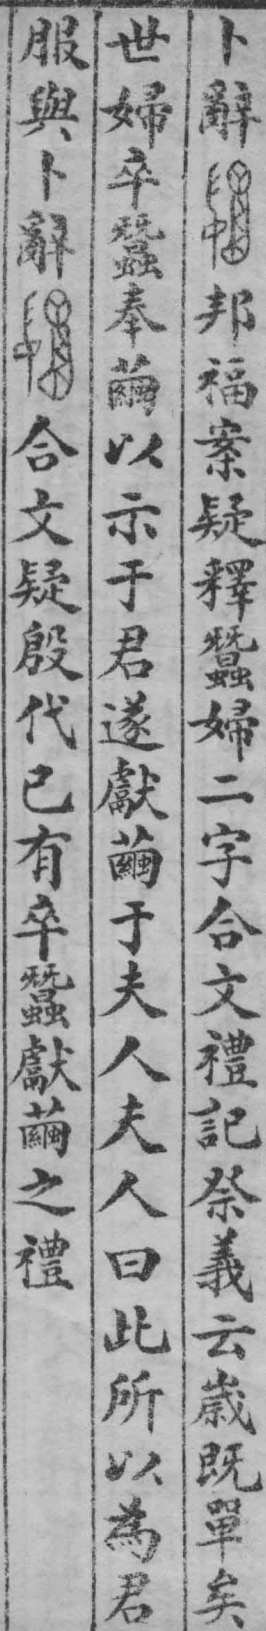 卜辭邦福案疑釋蠶婦二字合文禮記祭義云歲既單矣
世婦卒蠶奉繭以示于君遂獻繭于夫人夫人曰此所以為君
服與卜辭合文疑殷代已有卒蠶獻繭之禮